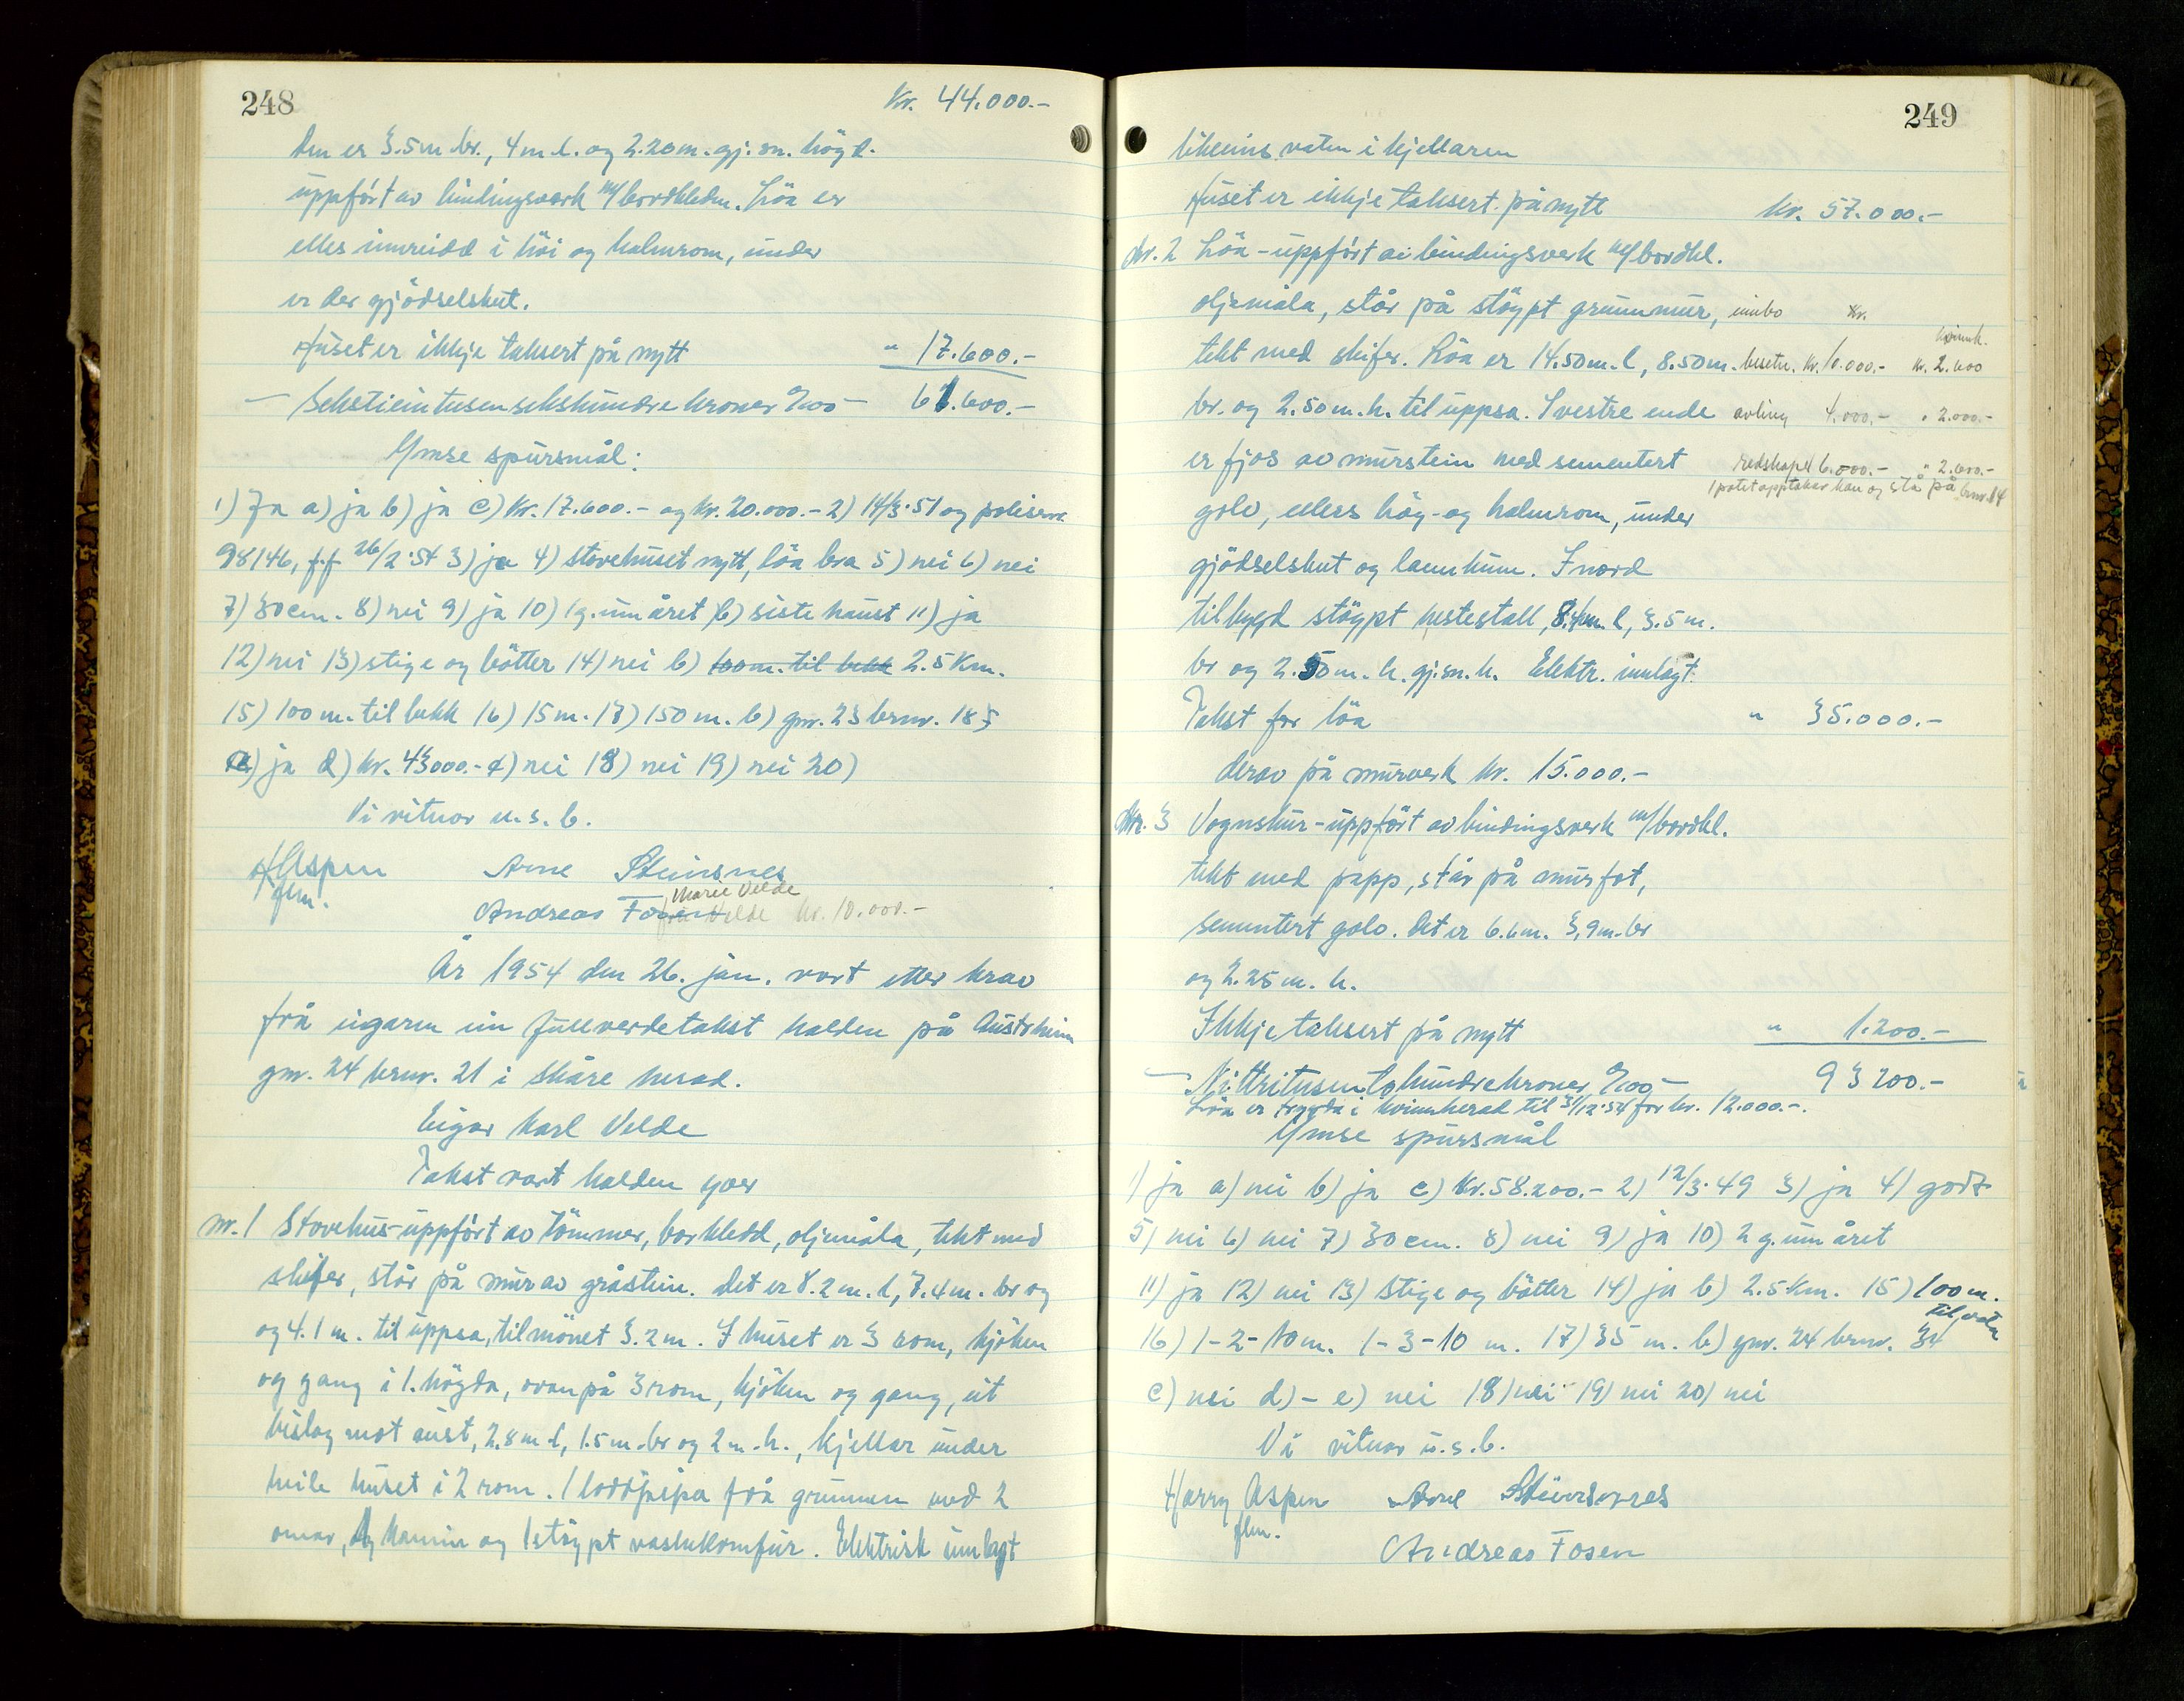 248
Kr. 44.000.-
Den er 3.5 m br., 4 m l. og 2.20 m. gj.sn. högd.
uppfört av bindingsverk m/bordkledn. Löa er
elles innreidd i höi og halmrom, under
er der gjödselskut.
Huset er ikkje taksert på nytt " 17.600.-
- Sekstieintusensekshundre kroner 0/00 - 61.600.-
Ymse spursmål:
1) Ja a) ja b) ja c) Kr. 17.600.- og Kr. 20.000.- 2) 14/3-51 og polisenr.
98146, f.f 26/2-54 3) ja 4) stovehuset nytt, löa bra 5) nei 6) nei
7) 30 cm. 8) nei 9) ja 10) 1 g. um året b) siste haust 11) ja
12) nei 13) stige og bötter 14) nei b) 100 m. til bekk 2.5 Km.
15) 100 m. til bekk 16) 15 m. 17) 150 m. b) gnr. 23 brnr. 183
c) ja d) kr. 43000.- e) nei 18) nei 19) nei 20)
Vi vitnar u.s.b.
H Aspen Arne Steinsnes
flm. Marie Velde
Andreas Fosen Velde kr. 10.000.-
År 1954 den 26. jan. vart etter krav
frå eigaren ein fullverdetakst halden på Austrheim
gnr. 24 brnr. 21 i Skåre herad.
Eigar Karl Velde
Takst vart halden yver
nr. 1 Stovehus - uppfört av tömmer, borkledd, oljemåla, tekt med
skifer, står på mur av gråstein. Det er 8.2 m. l, 7.4 m. br og
og 4.1 m. til uppsa, til mönet 3.2 m. I huset er 3 rom, kjöken
og gang i 1. högda, ovanpå 3 rom, kjöken og gang, eit
bislag mot aust, 2.8 m l, 1.5 m. br og 2 m. h., kjellar under
heile huset i 2 rom. 1 loddpipa frå grunnen med 2
omnar, kamin og 1 støypt vaskekomfur. Elektrisk innlagt
249
likeeins vatn i kjellaren
Huset er ikkje taksert på nytt Kr. 57.000.-
Nr. 2 Löa - uppfört av bindingsverk m/bordkl.
oljemåla, står på stöypt grunnmur, innbo Kr.
kvinnh.
tekt med skifer. Löa er 14.50 m. l, 8.50 m. besetn. Kr. 10.000.- Kr. 2.600
br. og 2.50 m. h. til uppsa. I vestre ende avling 4.000.- " 2.000.-
er fjos av murstein med sementert redskapar 6.000.- " 2.600.-
1 potetopptakar kan og stå på brnr. 84
golv, ellers höy- og halmrom, under
gjödselskut og landkum. I nord
tilbygd stöypt hestestall, 8.4 m. l, 3.5 m.
br og 2.50 m. h. gj.sn.h. Elektr. innlagt.
Takst for löa " 35.000.-
derav på murverk kr. 15.000.-
Nr. 3 Vognskur - uppfört av bindingsverk m/bordkl.
tekt med papp, står på murfot,
sementert golv. Det er 6.6 m. 3,9 m. br
og 2.25 m. h.
Ikkje taksert på nytt " 1.200.-
- Nittritusentohundrekroner 0/00 - 93200.-
Löa er trygda i kvinnherad til 31/12-54 for kr. 12.000.-.
Ymse spursmål
1) ja a) nei b) ja c) kr. 58.200.- 2) 12/3-49 3) ja 4) godt
5) nei 6) nei 7) 30 cm. 8) nei 9) ja 10) 2 g. um året
11) ja 12) nei 13) stige og bötter 14) ja b) 2.5 Km. 15) 100 m.
til vatn
16) 1-2-10 m. 1-3-10 m. 17) 35 m. b) gnr. 24 brnr. 34
c) nei d) - e) nei 18) nei 19) nei 20) nei
Vi vitnar u.s.b.
Harry Aspen Arne Steinsnes
flm.
Andreas Fosen